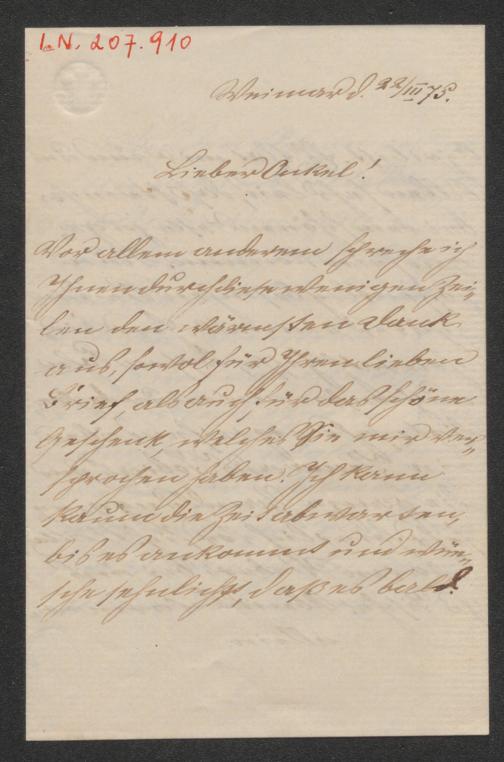 I.N. 207.910
Weimar d. 22/III 75.
Lieber Onkel!
Vor allem anderem spreche ich
Ihnen durch diese wenigen Zei-
len den wärmsten Dank
aus, sowol für Ihren lieben
Brief, als auch für das schöne
Geschenk, welches Sie mir ver-
sprochen haben. Ich kann
kaum die Zeit abwarten,
bis es ankommt und wün-
sche sehnlichst, daß es bald